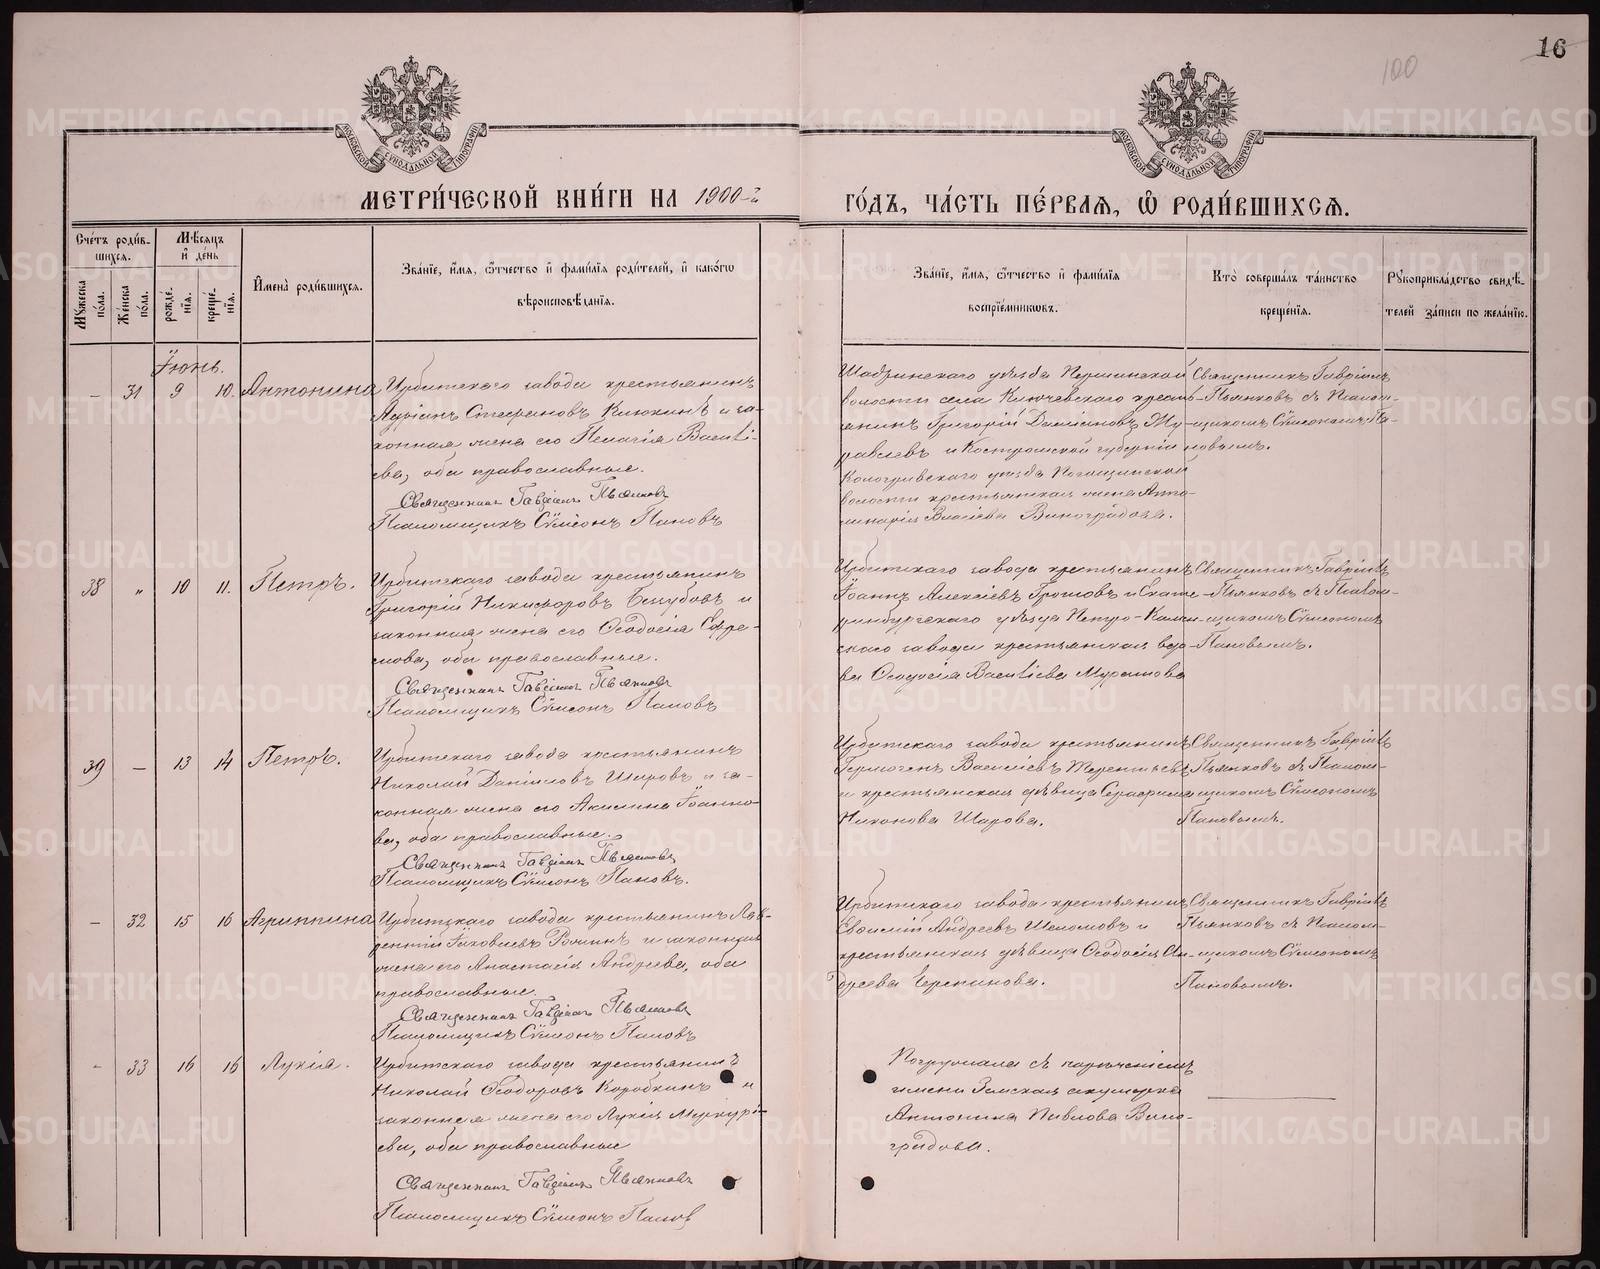 16
100
МОСКОВСКОЙ СѴНОДАЛЬНОЙ ТИПОГРАФІИ
МОСКОВСКОЙ СѴНОДАЛЬНОЙ ТИПОГРАФІИ
МЕТРИ́ЧЕСКОЙ КНИ́ГИ НА 1900-й
ГО́ДЪ, ЧА́СТЬ ПЕ́РВАЯ, Ѽ РОДИ́ВШИХСЯ.
Сче́тъ роди́в-
шихся.
Мѣ́сяцъ
и҆ де́нь
Му́жеска по́ла.
Же́нска по́ла.
рожде́нїя.
креще́нїя.
И҆мена̀ роди́вшихся.
Зва́нїе, и҆́мя, ѻ҆́тчество и҆ фами́лїя роди́телей, и҆ како́гѡ
вѣроисповѣ́данїя.
Зва́нїе, и҆́мя, ѻ҆́тчество и҆ фами́лїя
воспрїе́мникѡвъ.
Кто̀ соверша́лъ та́инство
креще́нїя.
Рукоприкла́дство свидѣ́-
телей за́писи по жела́нїю.
Іюнь.
– 31 9 10. Антонина
Ирбитскаго завода крестьянинъ
Адріанъ Стефановъ Клюкинъ и за-
конная жена его Пелагія Василі-
ева, оба православные.
Священникъ Гавріилъ Пьянковъ
Псаломщикъ Сѵмеонъ Пановъ
Шадринскаго уѣзда Першинской
волости села Ключевскаго кресть-
янинъ Григорій Даміановъ Жу-
равлевъ и Костромской губерніи
Кологривскаго уѣзда
волости крестьянская жена Апол-
линарія Власіева Виноградова.
Священникъ Гавріилъ
Пьянковъ съ Псалом-
щикомъ Сѵмеономъ Па-
новымъ.
38 „ 10 11. Петръ.
Ирбитскаго завода крестьянинъ
Григорій Никифоровъ и
законная жена его Ѳеодосія Ефре-
мова, оба православные.
Священникъ Гавріилъ Пьянковъ
Псаломщикъ Сѵмеонъ Пановъ
Ирбитскаго завода крестьянинъ
Іоаннъ Алексіевъ Громовъ и Екате-
ринбургскаго уѣзда Петро-Камен-
скаго завода крестьянская вдо-
ва Ѳеодосія Василіева Муратова
Священникъ Гавріилъ
Пьянковъ съ Псалом-
щикомъ Сѵмеономъ
Пановымъ.
39 – 13 14 Петръ.
Ирбитскаго завода крестьянинъ
Николай Даніиловъ Шаровъ и за-
конная жена его Акилина Іоанно-
ва, оба православные.
Священникъ Гавріилъ Пьянковъ
Псаломщикъ Сѵмеонъ Пановъ.
Ирбитскаго завода крестьянинъ
Гермогенъ Василіевъ Терентьевъ
и крестьянская дѣвица Серафима
Никонова Шарова.
Священникъ Гавріилъ
Пьянковъ съ Псалом-
щикомъ Сѵмеономъ
Пановымъ.
– 32 15 16 Агриппина
Ирбитскаго завода крестьянинъ Лав-
рентій Іаковлевъ и законная
жена его Анастасія Андреева, оба
православные.
Священникъ Гавріилъ Пьянковъ
Псаломщикъ Сѵмеонъ Пановъ
Ирбитскаго завода крестьянинъ
Евсигній Андреевъ Шеломовъ и
крестьянская дѣвица Ѳеодосія Ан-
дреева Черепанова.
Священникъ Гавріилъ
Пьянковъ съ Псалом-
щикомъ Сѵмеономъ
Пановымъ.
- 33 16 16 Лукія.
Ирбитскаго завода крестьянинъ
Николай Ѳеодоровъ Коробкинъ и
законная жена его Лукія Меркурі-
ева, оба православные
Священникъ Гавріилъ Пьянковъ
Псаломщикъ Сѵмеонъ Панов
Погружала съ нареченіемъ
имени Земская акушерка
Антонина Павлова Вино-
градова.
METRIKI.GASO-URAL.RU